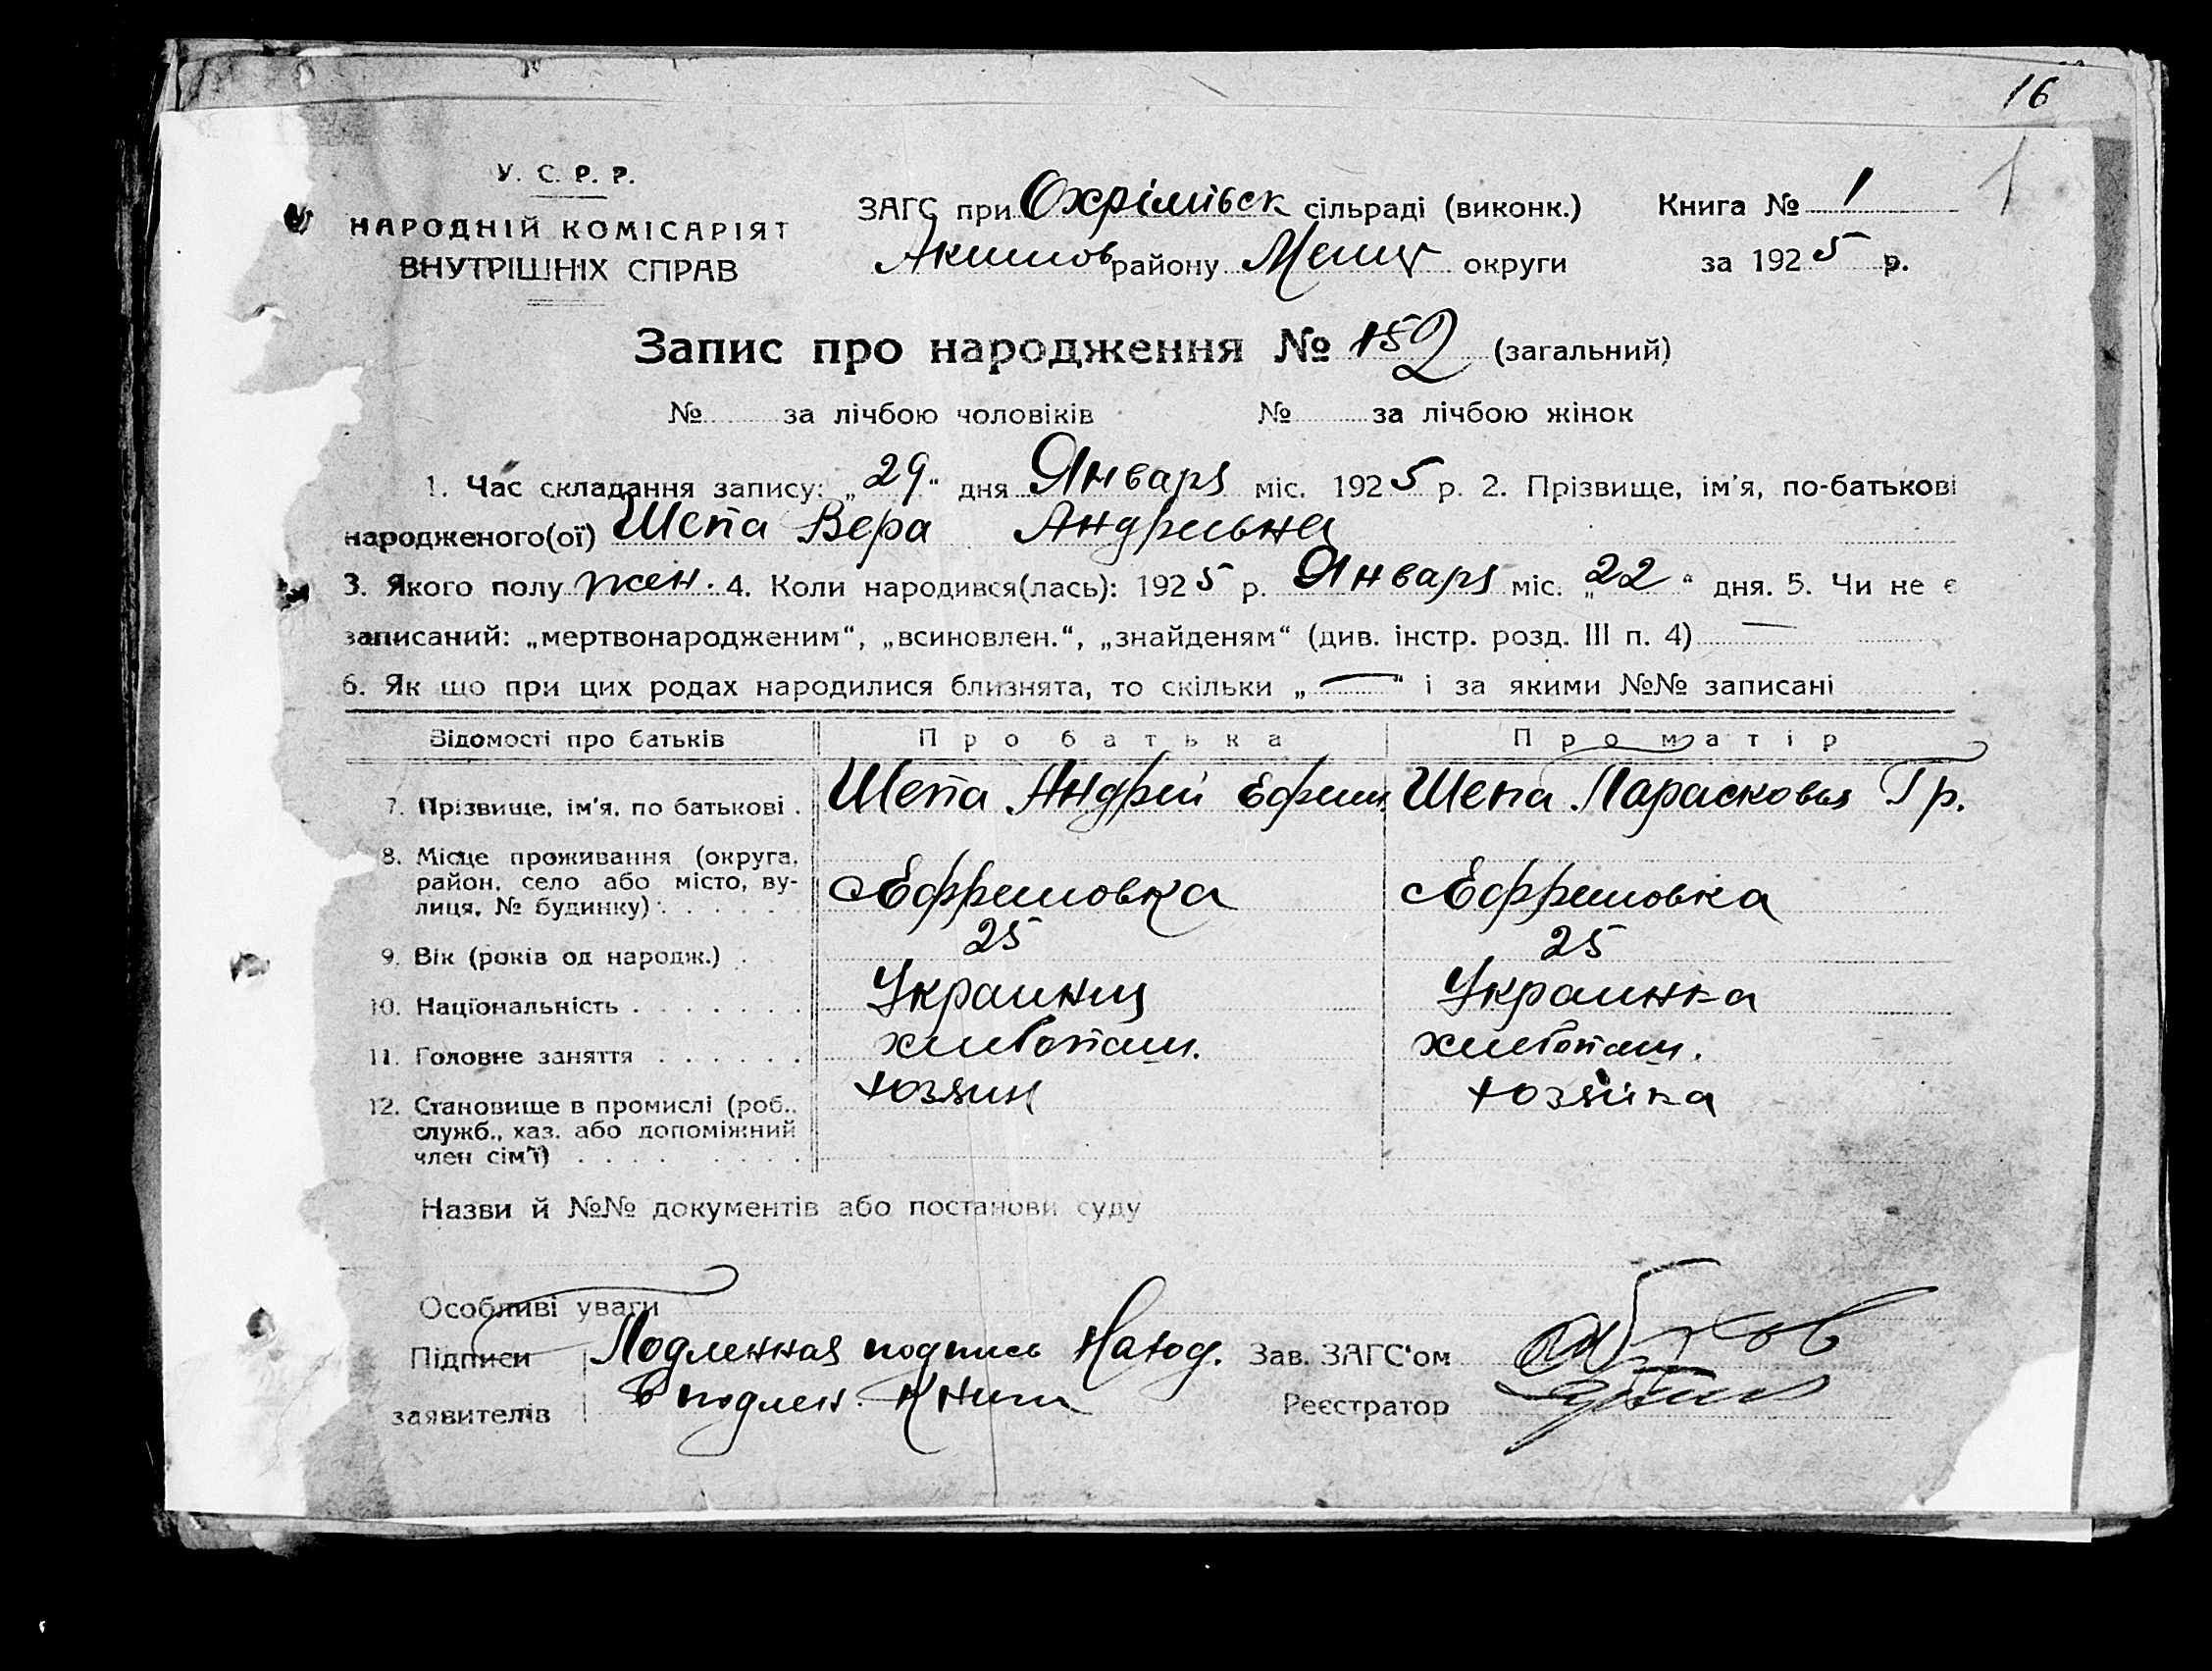 16
1
У. С. Р. Р.
НАРОДНІЙ КОМІСАРІЯТ
ВНУТРІШНІХ СПРАВ
ЗАГС при Охрімівськ сільраді (виконк.) Книга № 1
Акимов району Меліт округи за 1925 р.
Запис про народження № 152 (загальний)
№ за лічбою чоловіків № за лічбою жінок
1. Час складання запису: „29“ дня Января міс. 1925 р. 2. Прізвище, ім’я, по-батькові
народженого(ої) Шепа Вера Андреевна
3. Якого полу жен. 4. Коли народився(лась): 1925 р. Января міс. „22“ дня. 5. Чи не є
записаний: „мертвонародженим“, „всиновлен.“, „знайденям“ (див. інстр. розд. III п. 4) —
6. Як що при цих родах народилися близнята, то скільки „—“ і за якими №№ записані
Відомості про батьків Про батька Про матір
7. Прізвище, ім’я, по батькові . Шепа Андрей Ефрем Шепа Парасковья Гр.
8. Місце проживання (округа,
район, село або місто, ву-
лиця, № будинку) . . . . . Ефремовка Ефремовка
9. Вік (років од народж.) . 25 25
10. Національність . . . . . . . Украинец Украинка
11. Головне заняття . . . . . . хлебопаш. хлебопаш.
12. Становище в промислі (роб.,
служб., хаз. або допоміжний
член сім’ї) . . . . . . . . . хозяин хозяйка
Назви й №№ документів або постанови суду
Особливі уваги
Підписи Подленная подпись Наход. Зав. ЗАГС‘ом
заявителів в подлен. Книги Реєстратор